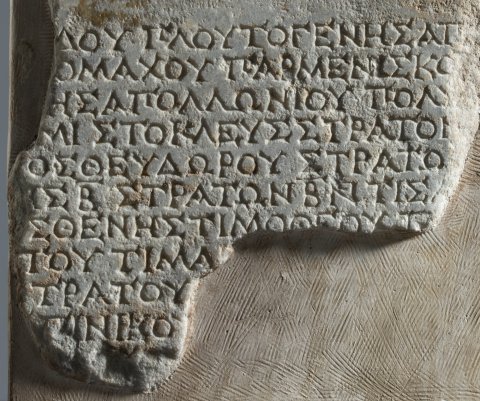 ΛΟΥ ΠΛΟΥΤΟΓΕΝΗΣ ΑΓ
ΟΜΑΧΟΥ ΠΑΡΜΕΝΙΣΚΟ
ΗΣ ΑΠΟΛΛΩΝΙΟΥ ΠΟΛΥ
ΜΙΣΤΟΚΛΕΥΣ ΣΤΡΑΤΟ
ΟΣ ΘΕΥΔΩΡΟΥ ΣΤΡΑΤΩ
ΙΣ Β ΣΤΡΑΤΩΝ Β
ΣΘΕΝΗΣ ΤΙΜΟΘΕΟΥ
ΤΟΥ ΤΙΜΑ
ΤΡΑΤΟΥ
ΑΝΙΚΟ